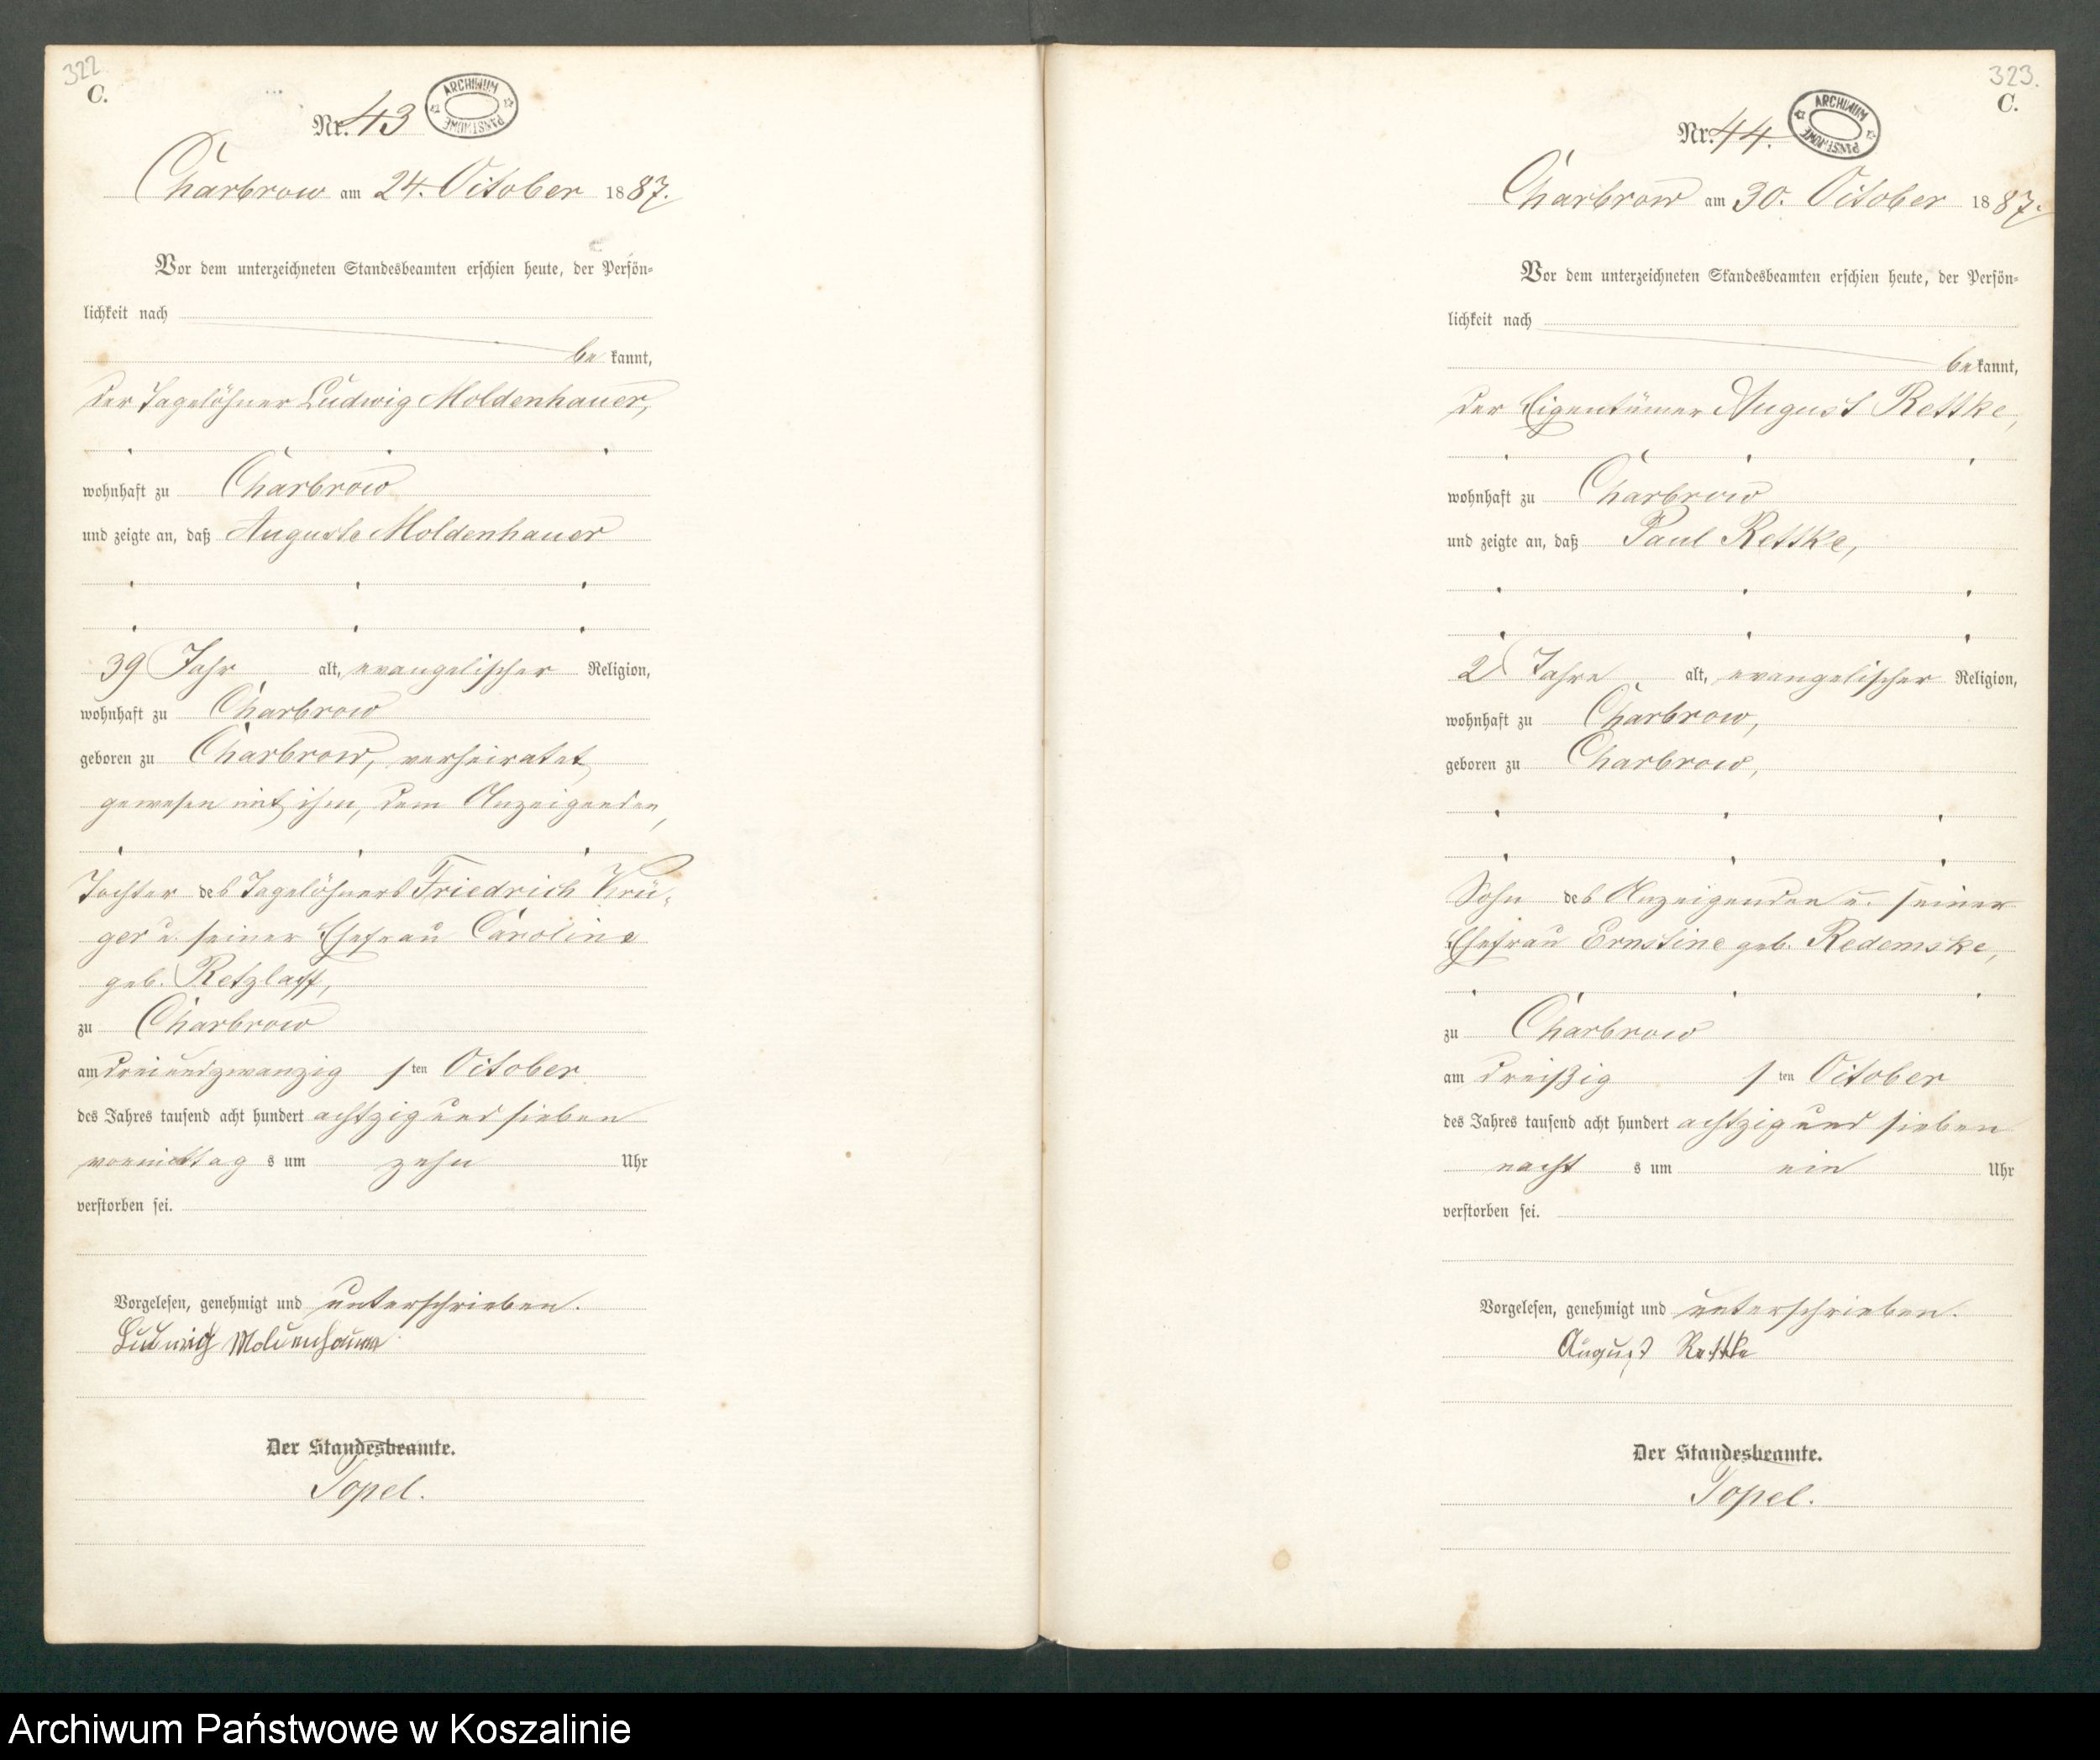 322
C.
ARCHIWUM PAŃSTWOWE
Nr. 43
Charbrow am 24. October 1887.
Vor dem unterzeichneten Standesbeamten erschien heute, der Persön-
lichkeit nach
be kannt,
der Tagelöhner Ludwig Moldenhauer,
wohnhaft zu Charbrow
und zeigte an, daß Auguste Moldenhauer
39 Jahr alt, evangelischer Religion,
wohnhaft zu Charbrow
geboren zu Charbrow, verheiratet
gewesen mit ihm, dem Anzeigenden,
Tochter des Tagelöhners Friedrich Krü-
ger u. seiner Ehefrau Caroline
geb. Retzlaff,
zu Charbrow
am dreiundzwanzig sten October
des Jahres tausend acht hundert achtzig und sieben
vormittag s um zehn Uhr
verstorben sei.
Vorgelesen, genehmigt und unterschrieben.
Ludwig Moldenhauer
Der Standesbeamte.
Topel.
323.
C.
ARCHIWUM PAŃSTWOWE
Nr. 44.
Charbrow am 30. October 1887.
Vor dem unterzeichneten Standesbeamten erschien heute, der Persön-
lichkeit nach
bekannt,
der Eigentümer August Rettke,
wohnhaft zu Charbrow
und zeigte an, daß Paul Rettke,
2 Jahre alt, evangelischer Religion,
wohnhaft zu Charbrow,
geboren zu Charbrow,
Sohn des Anzeigenden u. seiner
Ehefrau Ernstine geb. Redemske,
zu Charbrow
am dreißig sten October
des Jahres tausend acht hundert achtzig und sieben
nacht s um ein Uhr
verstorben sei.
Vorgelesen, genehmigt und unterschrieben.
August Rettke
Der Standesbeamte.
Topel.
Archiwum Państwowe w Koszalinie